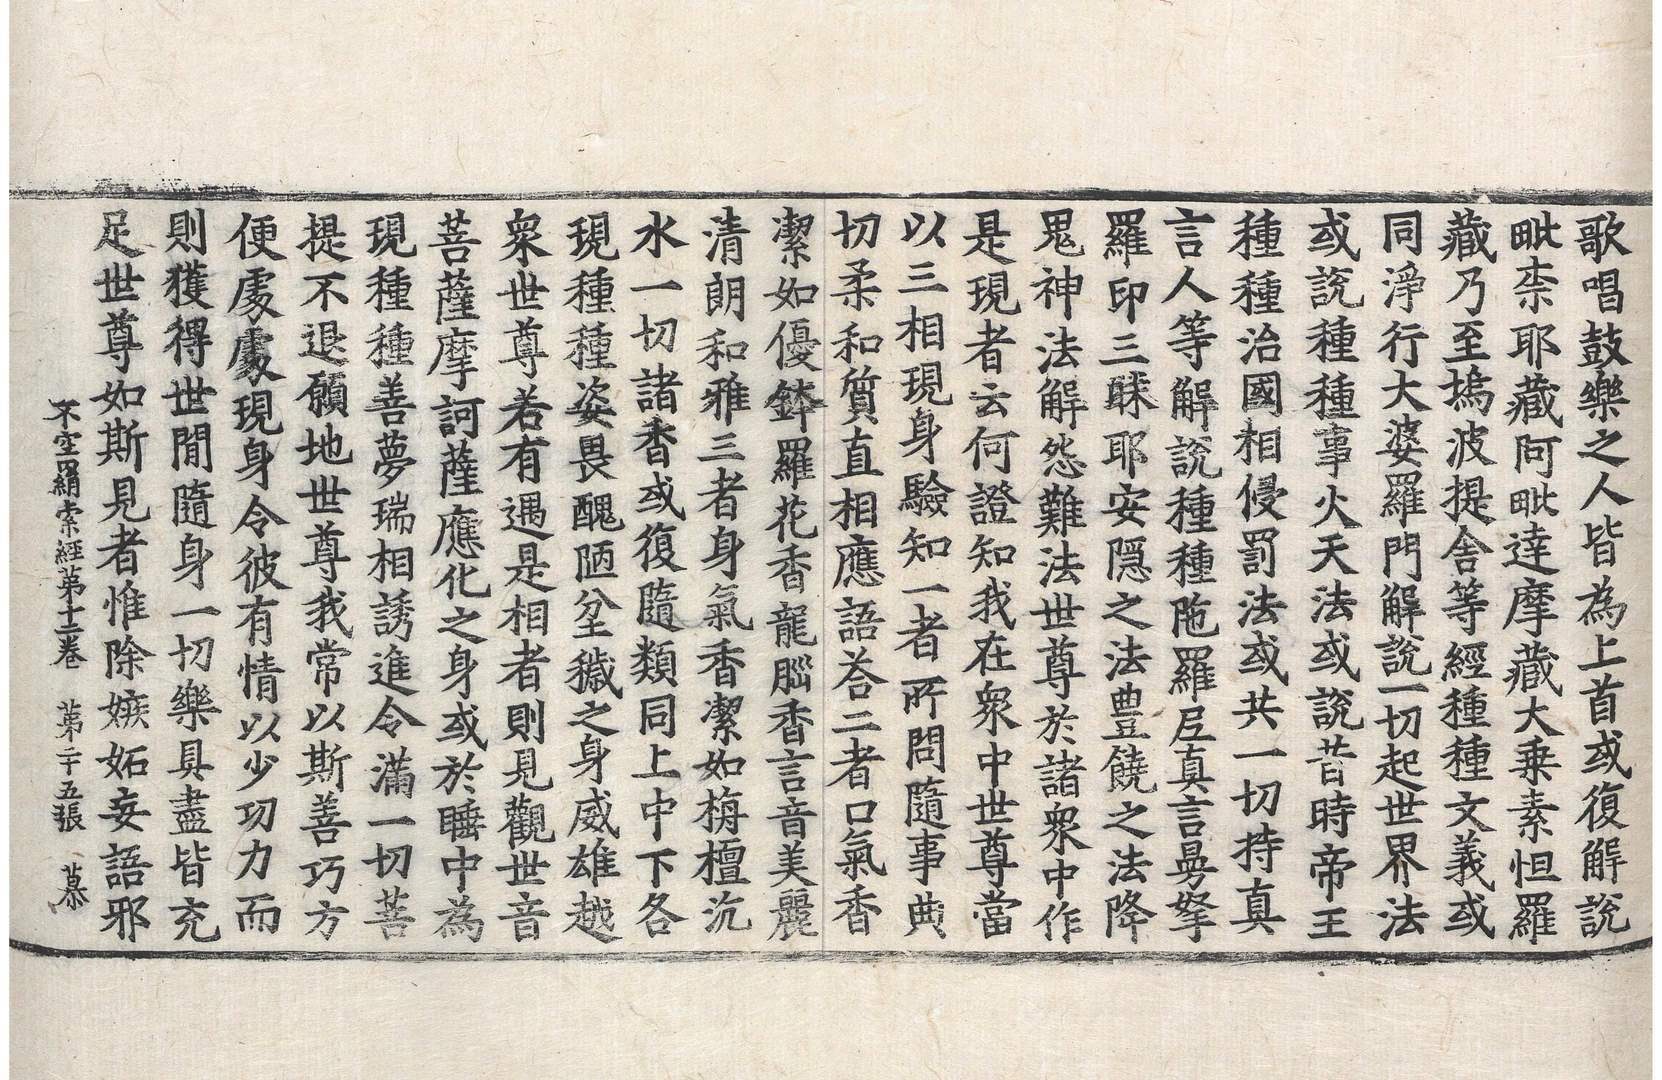 歌唱鼓樂之人皆為上首或復解說
毗柰耶藏阿毗達摩藏大乗素怛羅
藏乃至塢波提舍等經種種文義或
同淨行大婆羅門解說一切起世界法
或說種種事火天法或說昔時帝王
種種治國相侵罰法或共一切持真
言人等解說種種陁羅尼真言曼拏
羅印三昧耶安隱之法豊饒之法降
鬼神法解怨難法世尊於諸衆中作
是現者云何證知我在衆中世尊當
以三相現身驗知一者所問隨事典
切柔和質直相應語荅二者口氣香
潔如優鉢羅花香龍腦香言音美麗
清朗和雅三者身氣香潔如栴檀沉
水一切諸香或復隨類同上中下各
現種種姿畏醜陋坌穢之身威雄越
衆世尊若有遇是相者則見觀世音
菩薩摩訶薩應化之身或於睡中為
現種種善夢瑞相誘進令滿一切菩
提不退願地世尊我常以斯善巧方
便處處現身令彼有情以少功力而
則獲得世間隨身一切樂具盡皆充
足世尊如斯見者惟除嫉妬妄語邪
不空羂索經第十二卷 第二十五張 慕